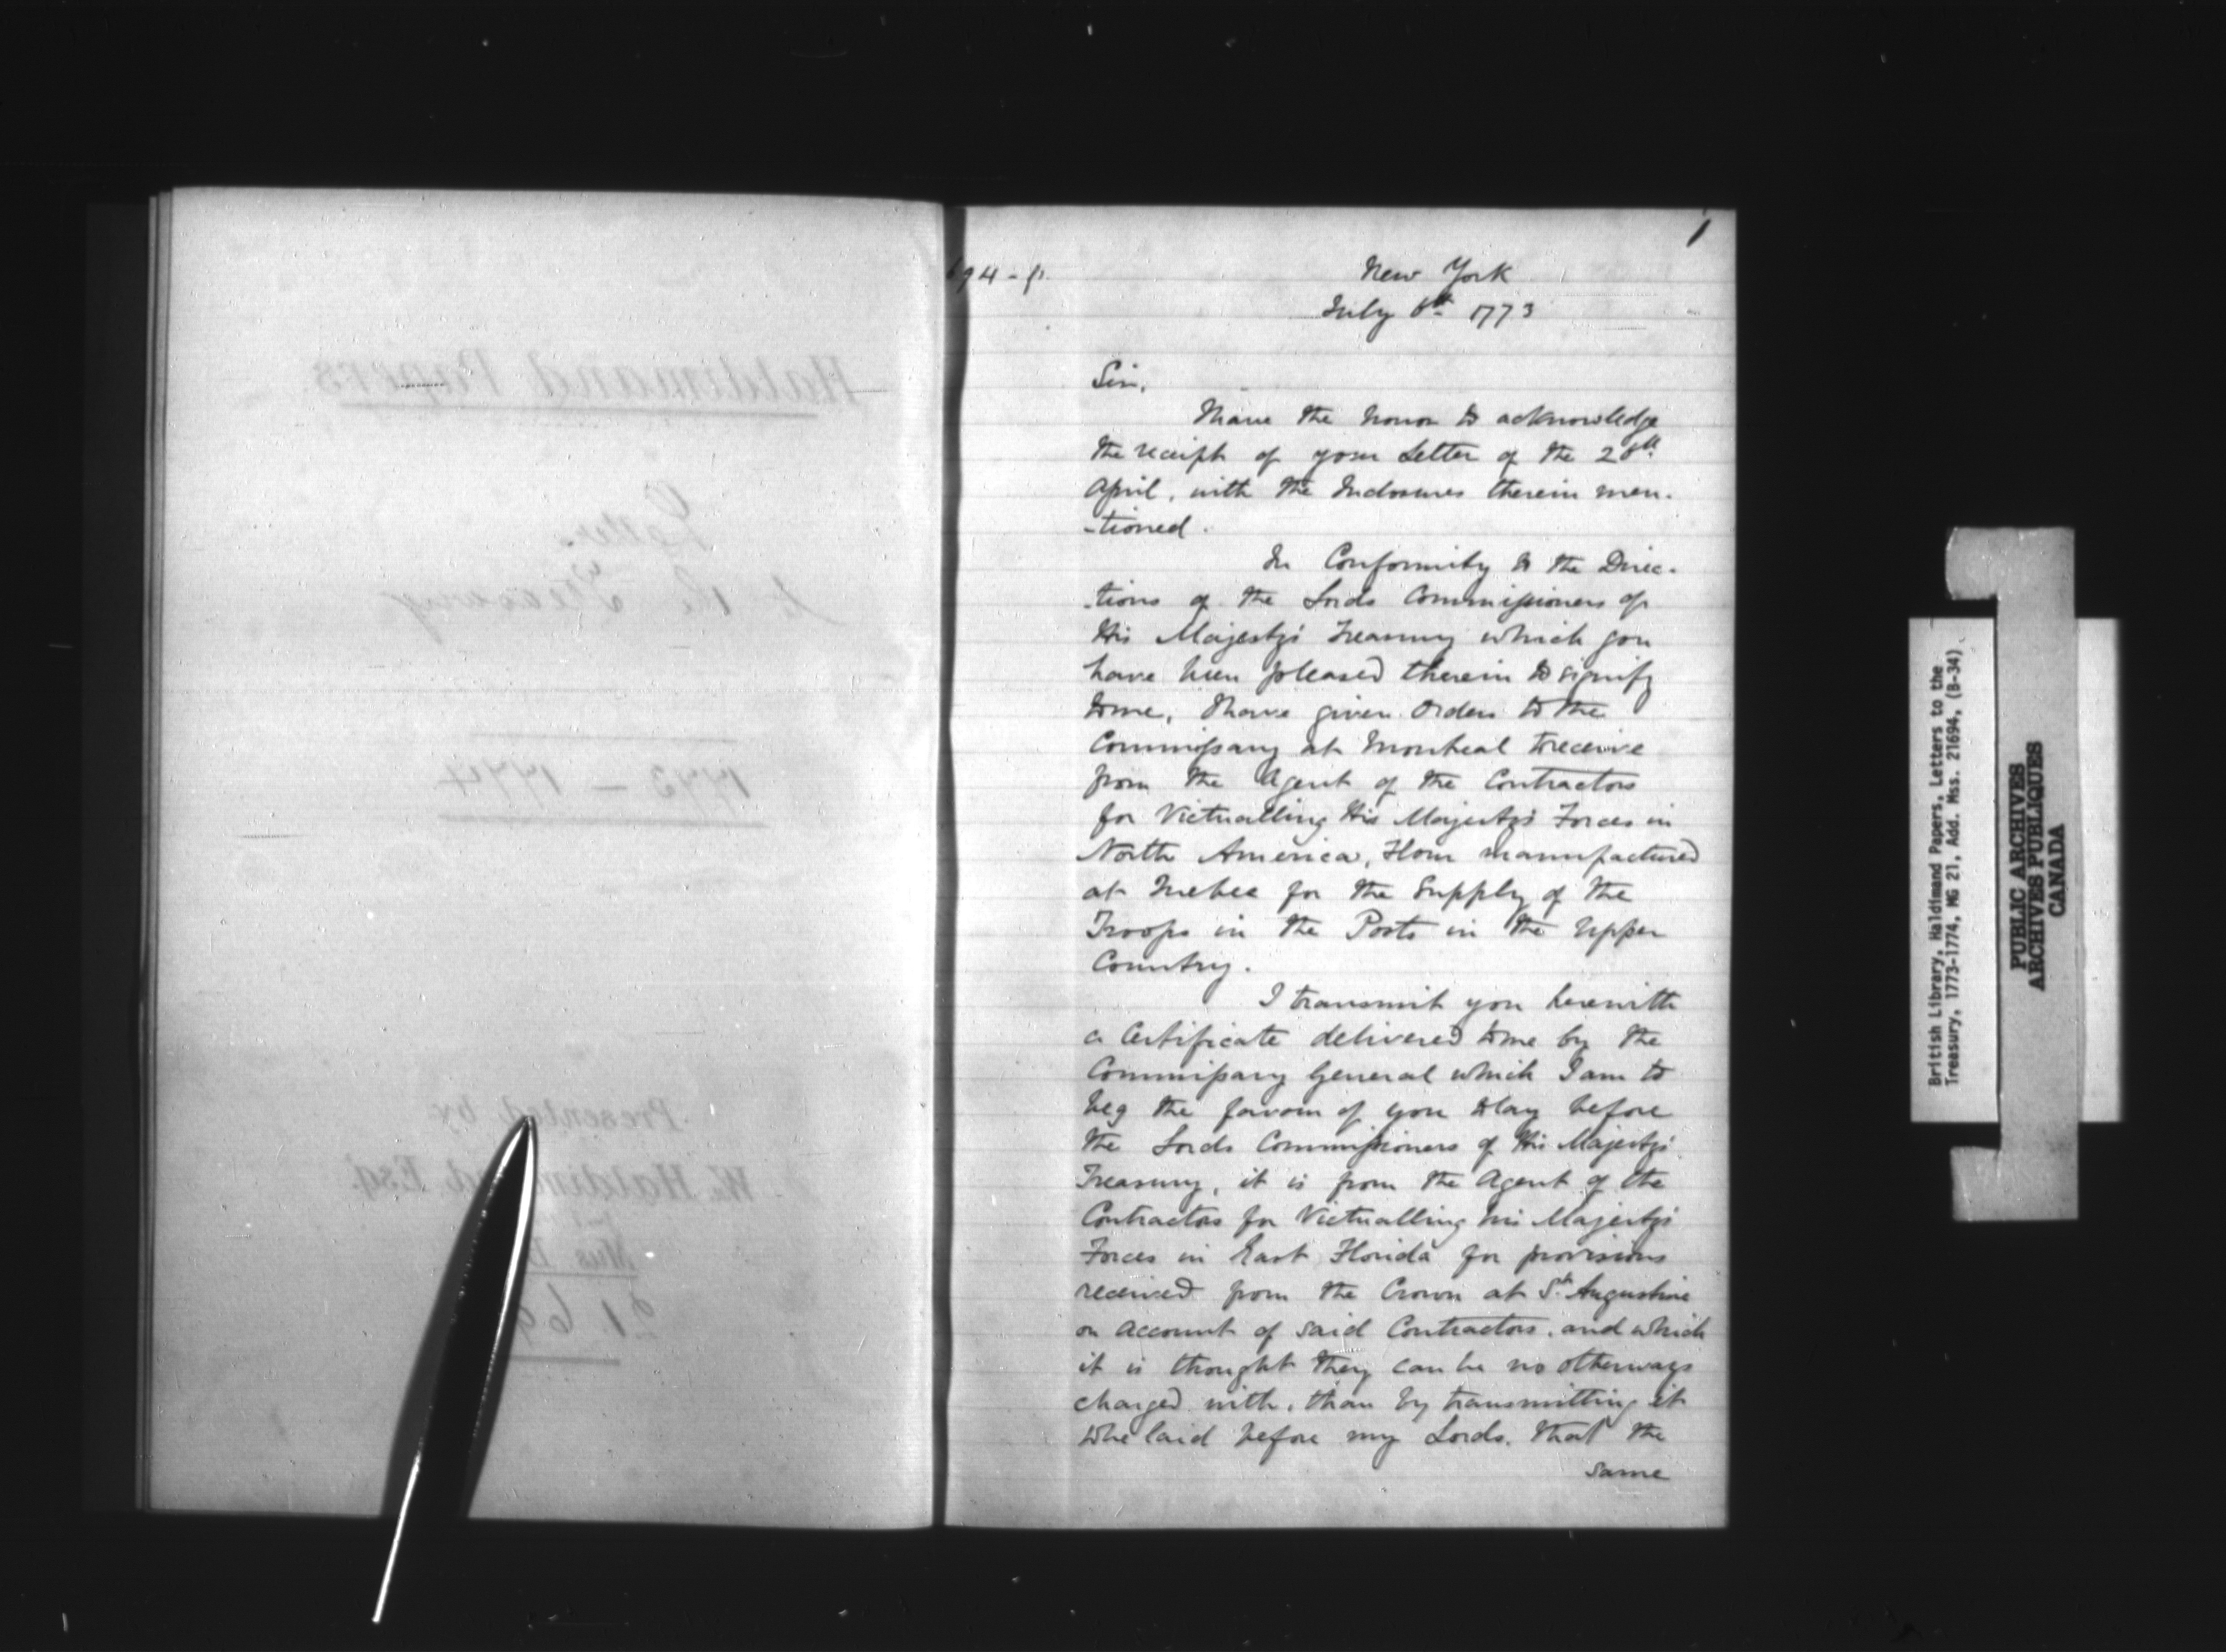 Haldimand Papers
Letters
to the Treasury
1773 – 1774
Presented by
W. Haldim d Esq.
Mus B
21.69
1
694-p.
New York
July 6th 1773
Sir,
I have the honor to acknowledge
the receipt of your Letter of the 28th
April, with the Inclosures therein men-
-tioned.
In Conformity to the Direc-
-tions of the Lords Commissioners of
His Majesty's Treasury which you
have been pleased therein to signify
to me, I have given Orders to the
Commissary at Montreal to receive
from the Agent of the Contractors
for Victualling His Majesty's Forces in
North America, Flour manufactured
at Quebec for the Supply of the
Troops in the Posts in the Upper
Country.
I transmit you herewith
a Certificate delivered to me by the
Commissary General which I am to
beg the favour of you to lay before
the Lords Commissioners of His Majesty's
Treasury, it is from the Agent of the
Contractors for Victualling his Majesty's
Forces in East Florida for provisions
received from the Crown at St. Augustine
on account of said Contractors, and which
it is thought they can be no otherways
charged with, than by transmitting it
to be laid before my Lords, that the
same
British Library, Haldimand Papers, Letters to the
Treasury, 1773-1774, MG 21, Add. Mss. 21694, (B-34)
PUBLIC ARCHIVES
ARCHIVES PUBLIQUES
CANADA